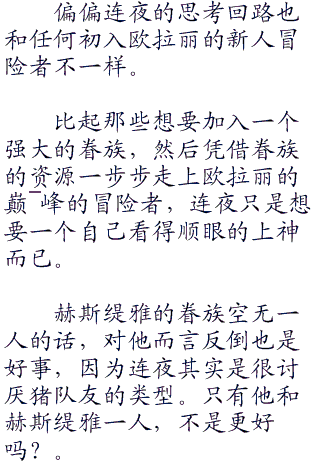 偏偏连夜的思考回路也
和任何初入欧拉丽的新人冒
险者不一样。
比起那些想要加入一个
强大的眷族，然后凭借眷族
的资源一步步走上欧拉丽的
巅¯峰的冒险者，连夜只是想
要一个自己看得顺眼的上神
而已。
赫斯缇雅的眷族空无一
人的话，对他而言反倒也是
好事，因为连夜其实是很讨
厌猪队友的类型。只有他和
赫斯缇雅一人，不是更好
吗？。